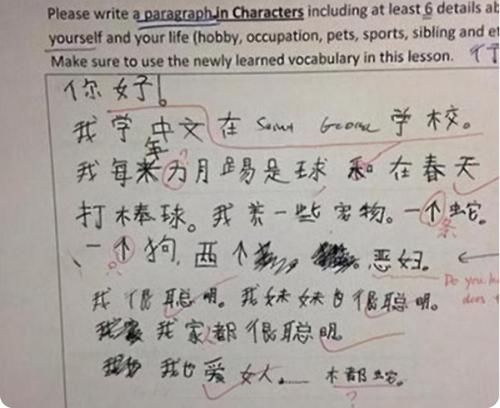 Please write a paragraph in Characters including at least 6 details ab
yourself and your life (hobby, occupation, pets, sports, sibling and et
Make sure to use the newly learned vocabulary in this lesson.
你好!
我学中文在 Saint George 学校。
年
我每为月踢是球和在春天
打棒球。我养一些宠物。一个蛇。
条
一个狗,西个 恶妇。
Do you
我很聪明。我妹妹也很聪明。
我家都很聪明
我也爱女人…… 木都蛇。